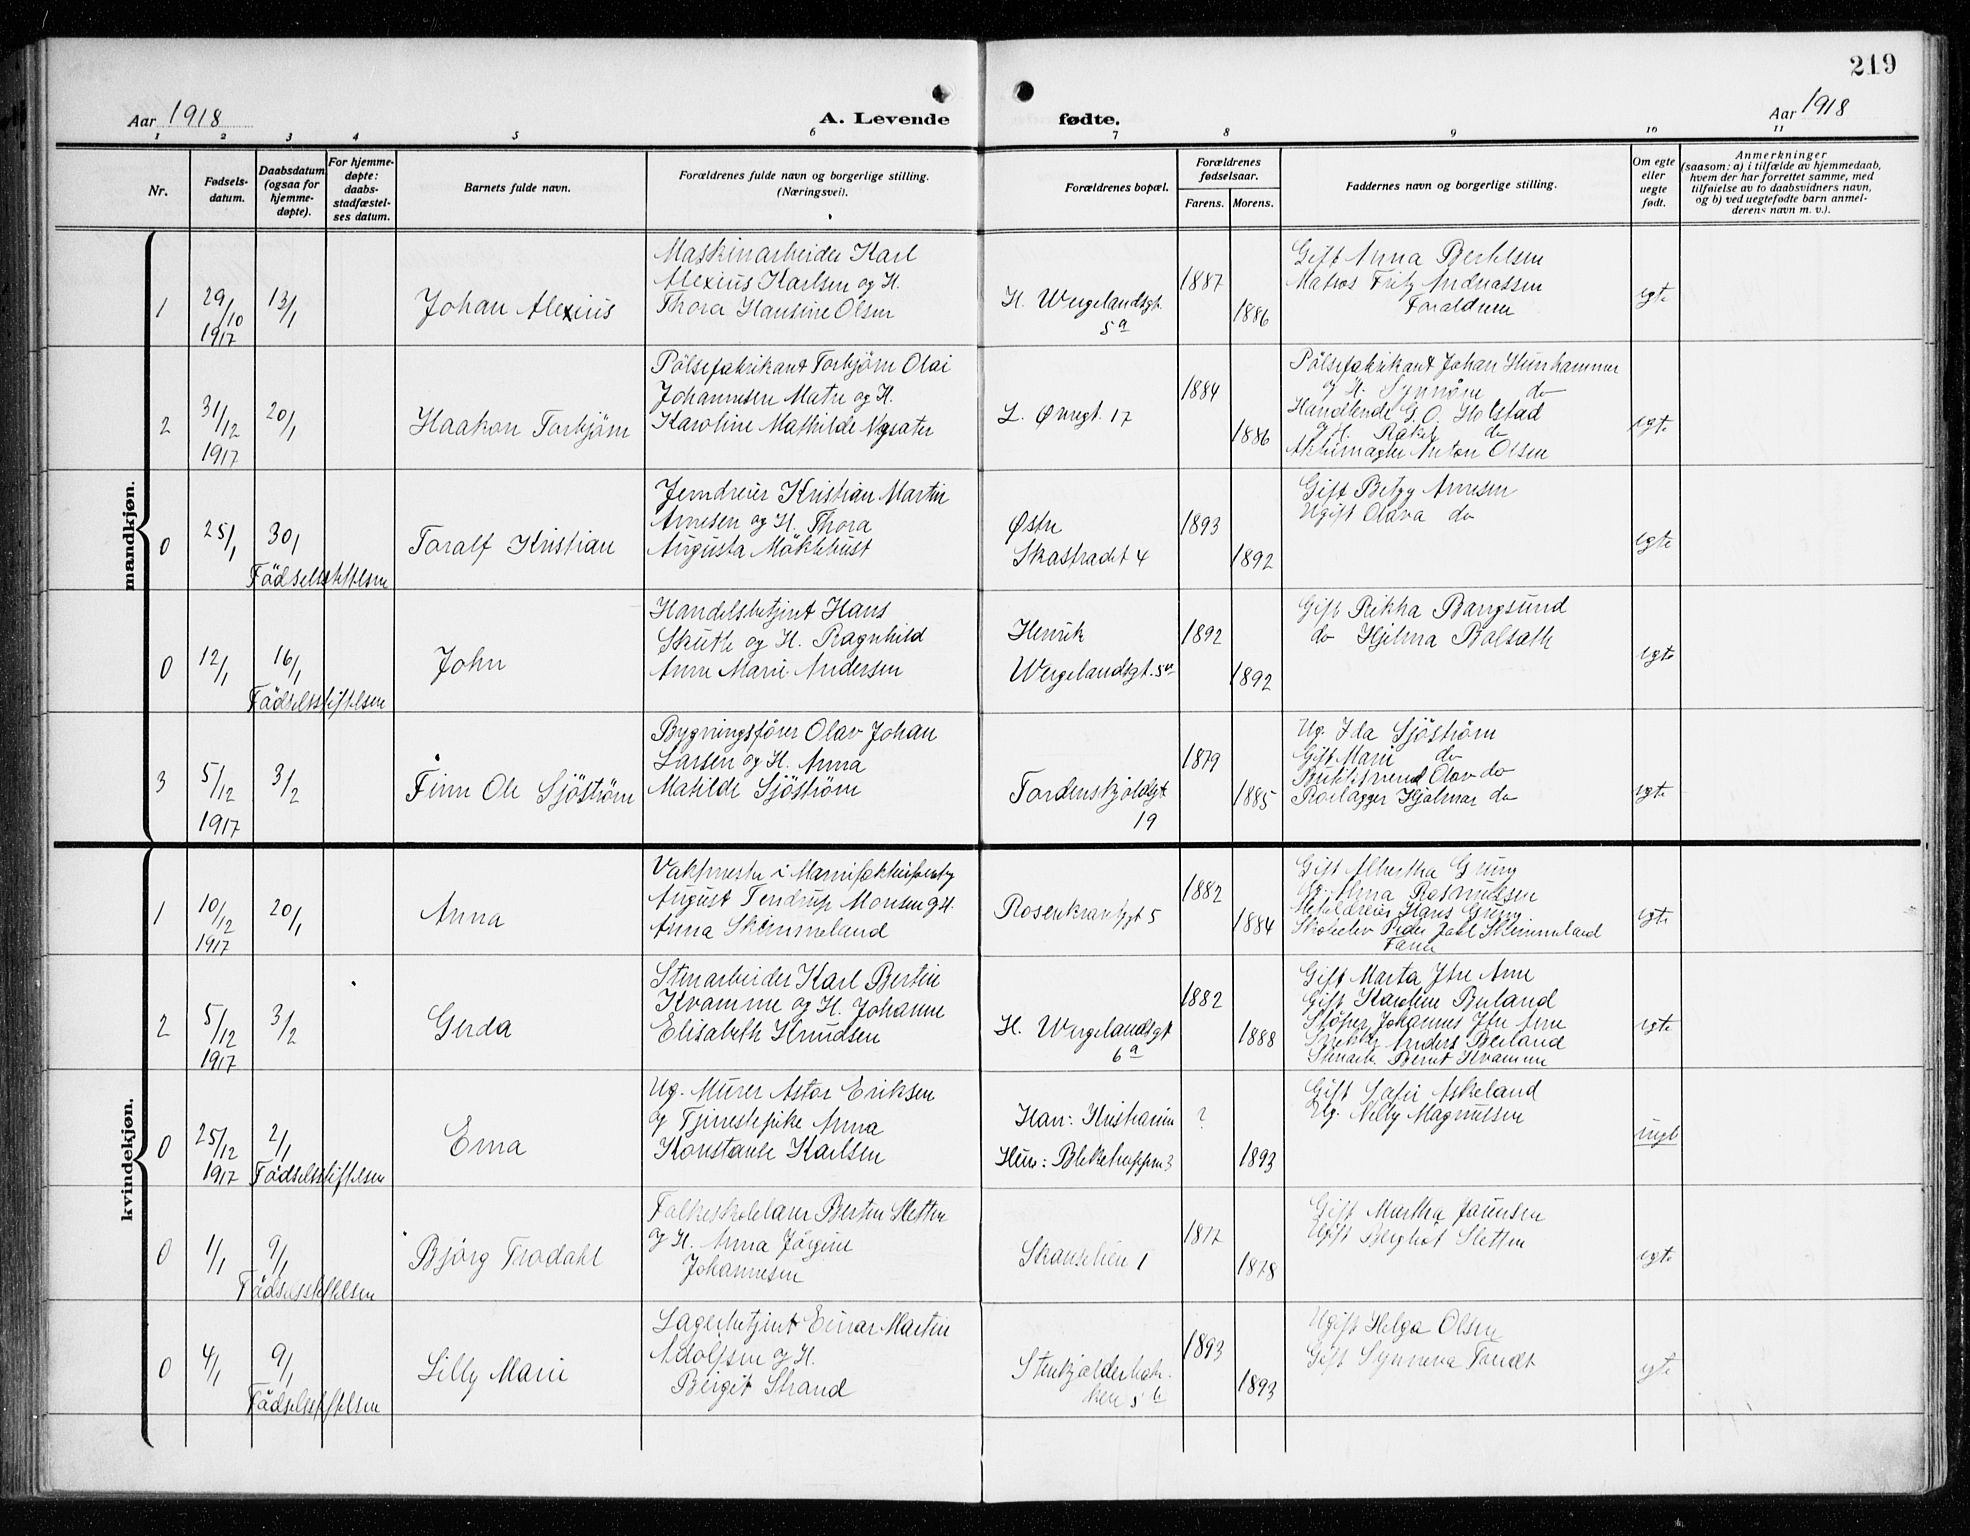 219
Aar 1918
A. Levende fødte.
Aar 1918
1 2 3 4 5 6 7 8 9 10 11
Nr.
Fødsels-
datum.
Daabsdatum
(ogsaa for
hjemme-
døpte).
For hjemme-
døpte:
daabs-
stadfæstel-
ses datum.
Barnets fulde navn.
Forældrenes fulde navn og borgerlige stilling.
(Næringsvei).
Forældrenes bopæl.
Forældrenes
fødselsaar.
Farens. Morens.
Faddernes navn og borgerlige stilling.
Om egte
eller
uegte
født.
Anmerkninger
(saasom: a) i tilfælde av hjemmedaab,
hvem der har forrettet samme, med
tilføielse av to daabsvidners navn,
og b) ved uegtefødte barn anmel-
derens navn m. v.).
mandkjøn.
1
29/10
1917
13/1
Johan Alexius
Maskinarbeider Karl
Alexius Karlsen og H.
Thora Hansine Olsen
H. Wergelandsgt.
5a
1887
1886
Gift Anna Bertelsen
Matros Fritz Andreassen
Forældrene
egte
2
31/12
1917
20/1
Haakon Torbjørn
Pølsefabrikant Torbjørn Olai
Johannesen Matre og H.
Karoline Mathilde
L. Øvregt. 17
1884
1886
Pølsefabrikant Johan
og H. Synnøve do
Handlende G. O. Holstad
og H. Rakel do
Anton Olsen
egte
0
25/1
30/1
Fødselsstiftelsen
Toralf Kristian
Jerndreier Kristian Martin
Arnesen og H. Thora
Augusta Möklebust
Østre
Skostrædet 4
1893
1892
Gift Betzy Arnesen
Ugift Olava do
egte
0
12/1
16/1
Fødselsstiftelsen
John
Handelsbetjent Hans
Skutle og H. Ragnhild
Anne Marie Andersen
Henrik
Wergelandsgt. 5a
1892
1892
Gift Rikka Bangsund
do Hjelma
egte
3
5/12
1917
3/2
Finn Ole Sjöström
Bygningsfører Olav Johan
Larsen og H. Anna
Matilde Sjöström
Tordenskjoldsgt
19
1879
1885
Ug. Ida Sjöström
Gift Marie do
Olav do
Rørlægger Hjalmar do
egte
kvindekjøn.
1
10/12
1917
20/1
Anna
Vaktmester i
August Tendrup Monsen og H.
Anna Skimmeland
Rosenkrantzgt 5
1882
1884
Gift Albertha Grung
Ug. Anna Rasmussen
Metaldreier Hans Grung
Skoleelev Peder Skimmeland
Faren
egte
2
5/12
1917
3/2
Gerda
Stenarbeider Karl Bertin
Kvamme og H. Johanne
Elisabeth Knudsen
H. Wergelandsgt
6a
1882
1888
Gift Marta Ytre Arne
Gift Karoline Buland
Støper Johannes Ytre Arne
Snekker Anders Beiland
Stenarb. Bernt Kvamme
egte
0
25/12
1917
2/1
Fødselsstiftelsen
Erna
Ug. Murer Astor Eriksen
og Tjenestepike Anna
Konstanse Karlsen
Han: Kristiania
Hun: Blekketrappen 3
?
1893
Gift Sofie Askeland
Ug. Nelly Magnussen
uegte
0
1/1
9/1
Fødselsstiftelsen
Bjørg Trodahl
Folkeskolelærer Bertin Sletten
og H. Anna Jörgine
Johannesen
Skanselien 1
1877
1878
Gift Martha
Ugift Bergliot Sletten
egte
0
4/1
9/1
Fødselsstiftelsen
Lilly Marie
Lagerbetjent Einar Martin
Adolfsen og H.
Birgit Strand
Stenkjælderbak-
ken 5b
1893
1893
Ugift Helga Olsen
Gift Synneva
egte